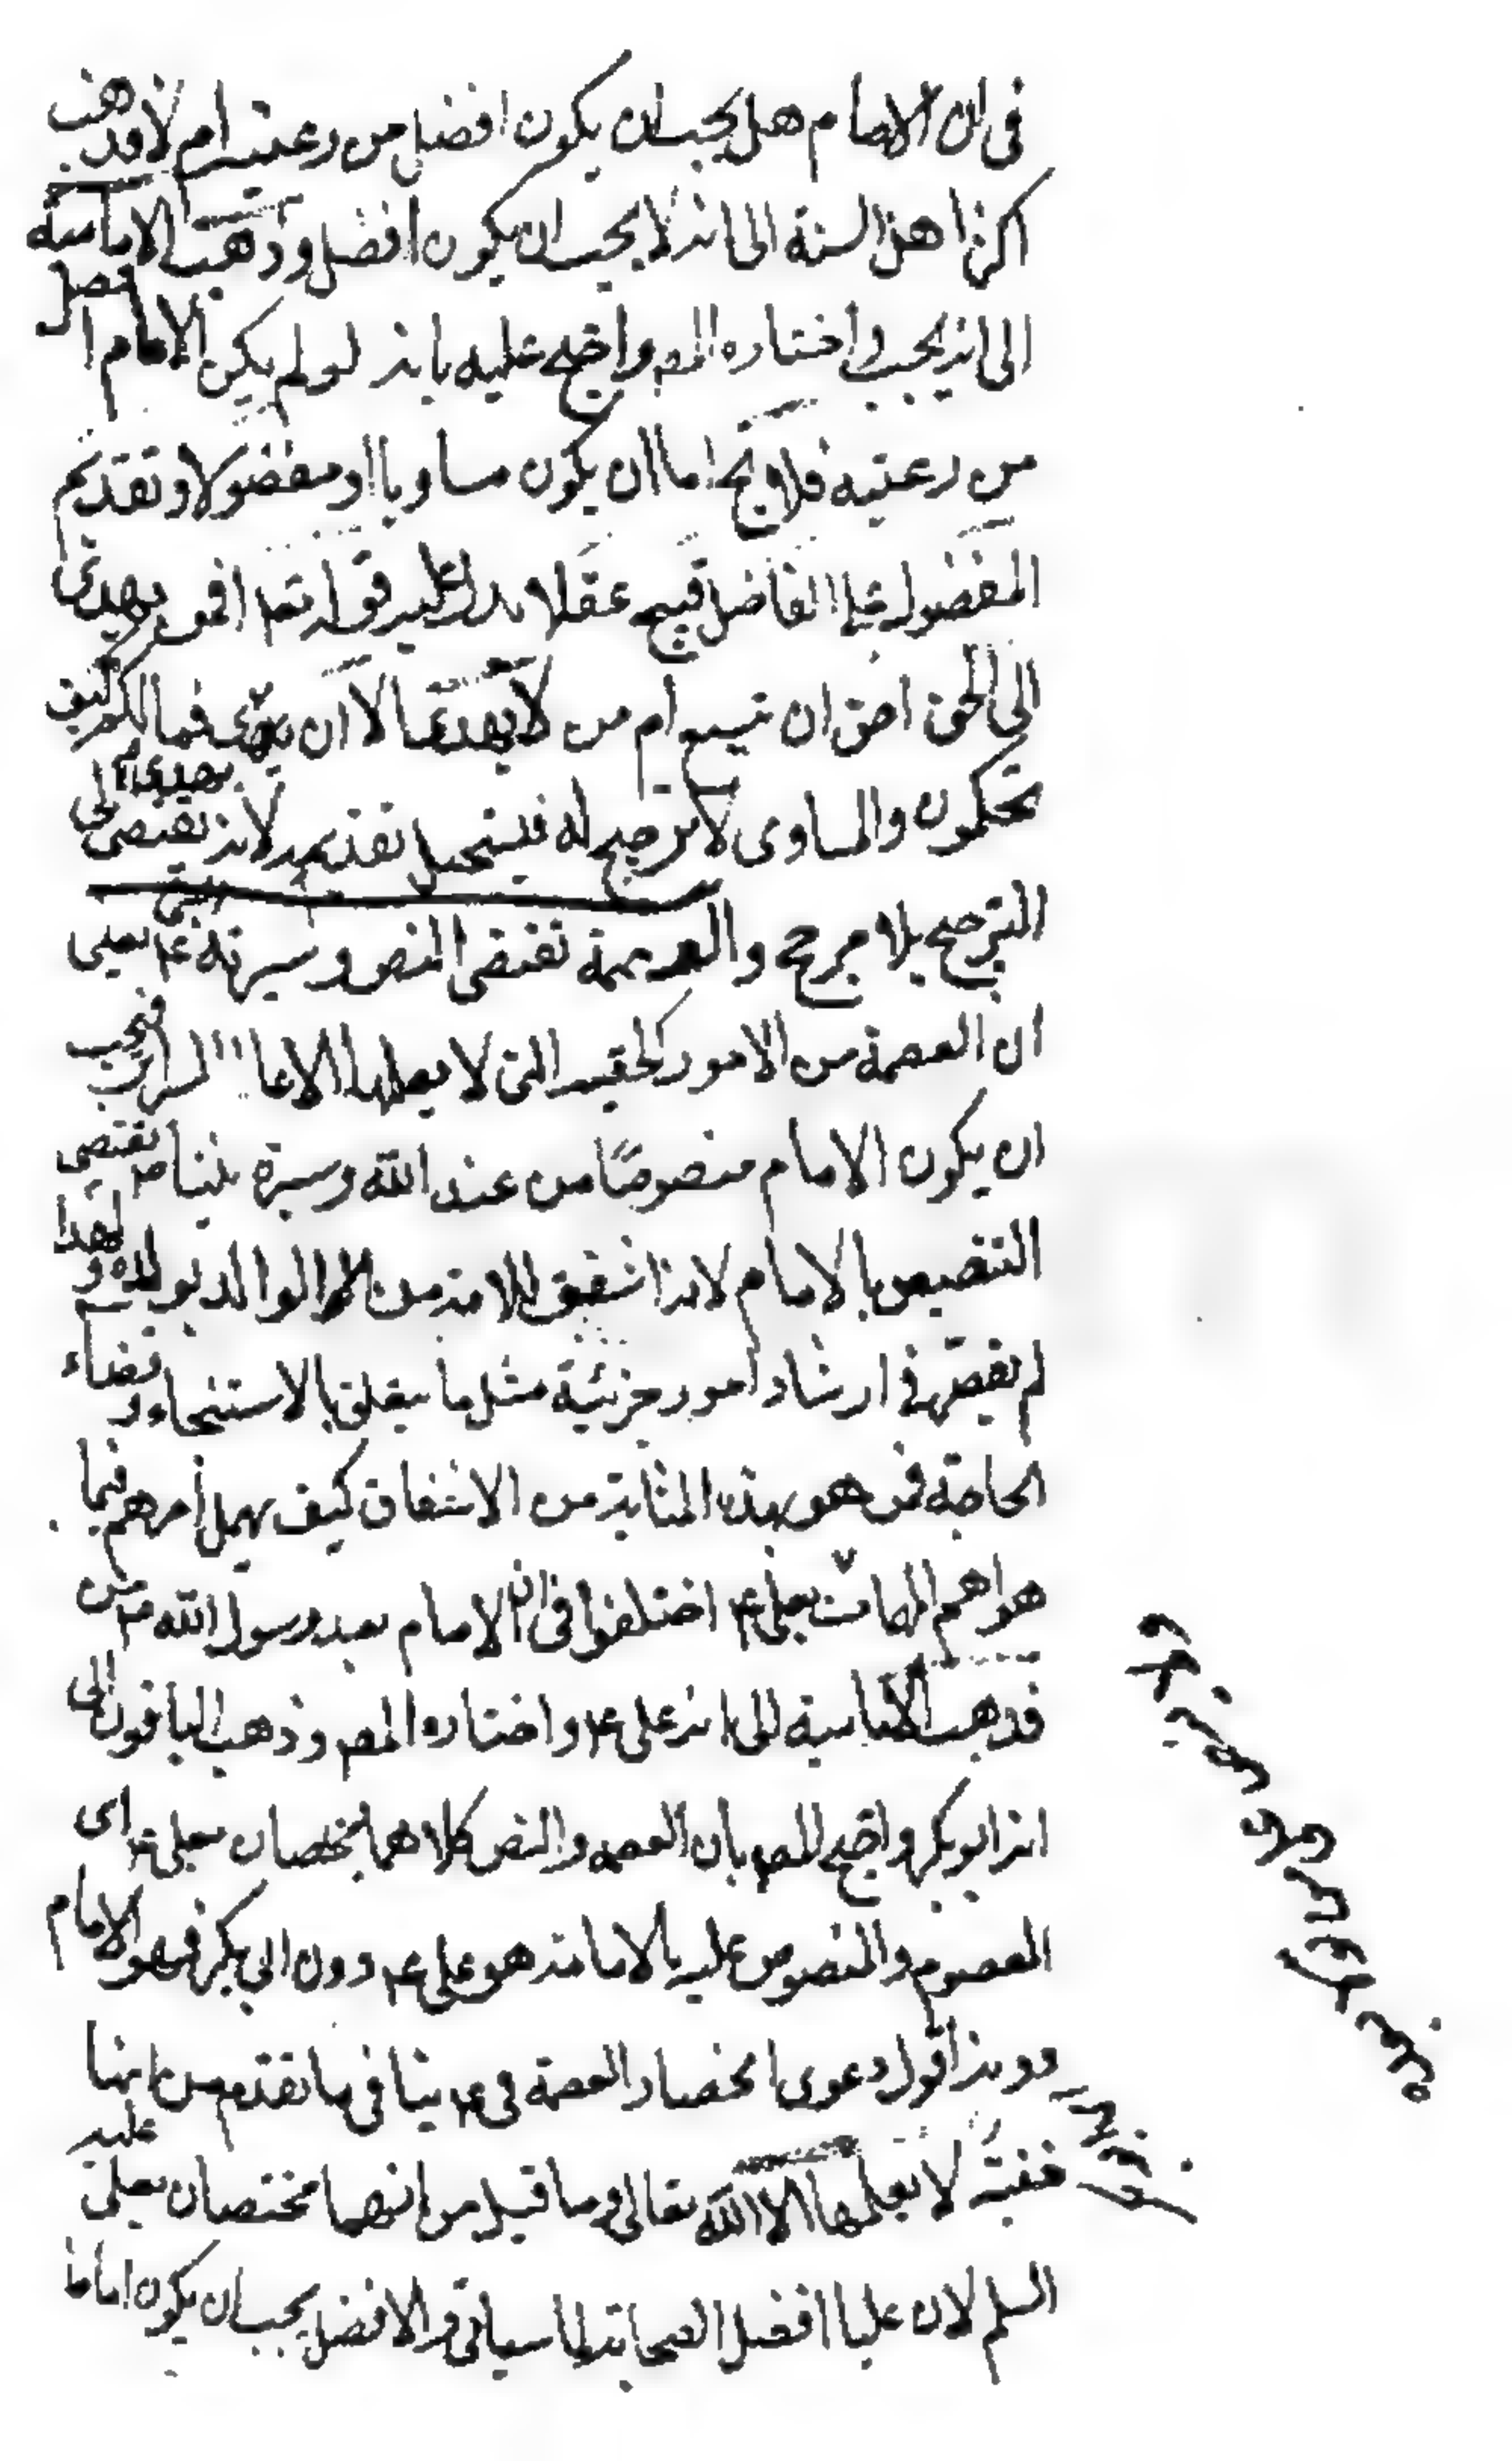 في ان الامام هل يجب ان يكون افضل من رعيته ام لا وذهب
اكثر اهل السنة الى انه لا يجب ان يكون افضل وذهبت الامامية
الى انه يجب واختاره المص واحتج عليه بانه لو لم يكن الامام افضل
من رعيته فلا يخ اما ان يكون مساويا او مفضولا وتقديم
المفضول على الفاضل قبيح عقلا يدل عليه قوله تعا افمن يهدى
الى الحق احق ان تتبع ام من لا يهدى الا ان يهدى فما لكم كيف
تحكمون والمساوى لا ترجيح له فيستحيل تقديمه لانه يقتضى الى
الترجيح بلا مرجح والعصمة تقتضى النص وسيرته ع يعنى
ان العصمة من الامور الخفية التى لا يعلمها الا عالم السرائر فيجب
ان يكون الامام منصوصًا من عند الله وسيرة نبينا ص تقتضى
التنصيص بالامام لانه اشفق للامة من الوالد بولده ولهذا
لم يقصر في ارشاد امور جزئية مثل ما يتعلق بالاستنجاء وقضاء
الحاجة فمن هو بهذه المثابة من الاشفاق كيف يهمل أمرهم فيما
هو اهم المهمات بعلى ع اختلفوا في ان الامام بعد رسول الله ص من
فذهبت الامامية الى انه على ع واختاره المص وذهب الباقون الى
انه ابو بكر واحتج المص بان العصمة والنص كلاهما مختصان بعلى ع اى
المعصوم والمنصوص عليه بالامامة هو على ع دون ابى بكر فهو الامام
دونه اقول دعوى انحصار العصمة في ع ينافى ما تقدم من انها
خفية لا يعلمها الا الله تعالى وما قيل من انهما مختصان بعلى عليه
السلم لان عليا افضل الصحابة لما سياتى والافضل يجب ان يكون اماما